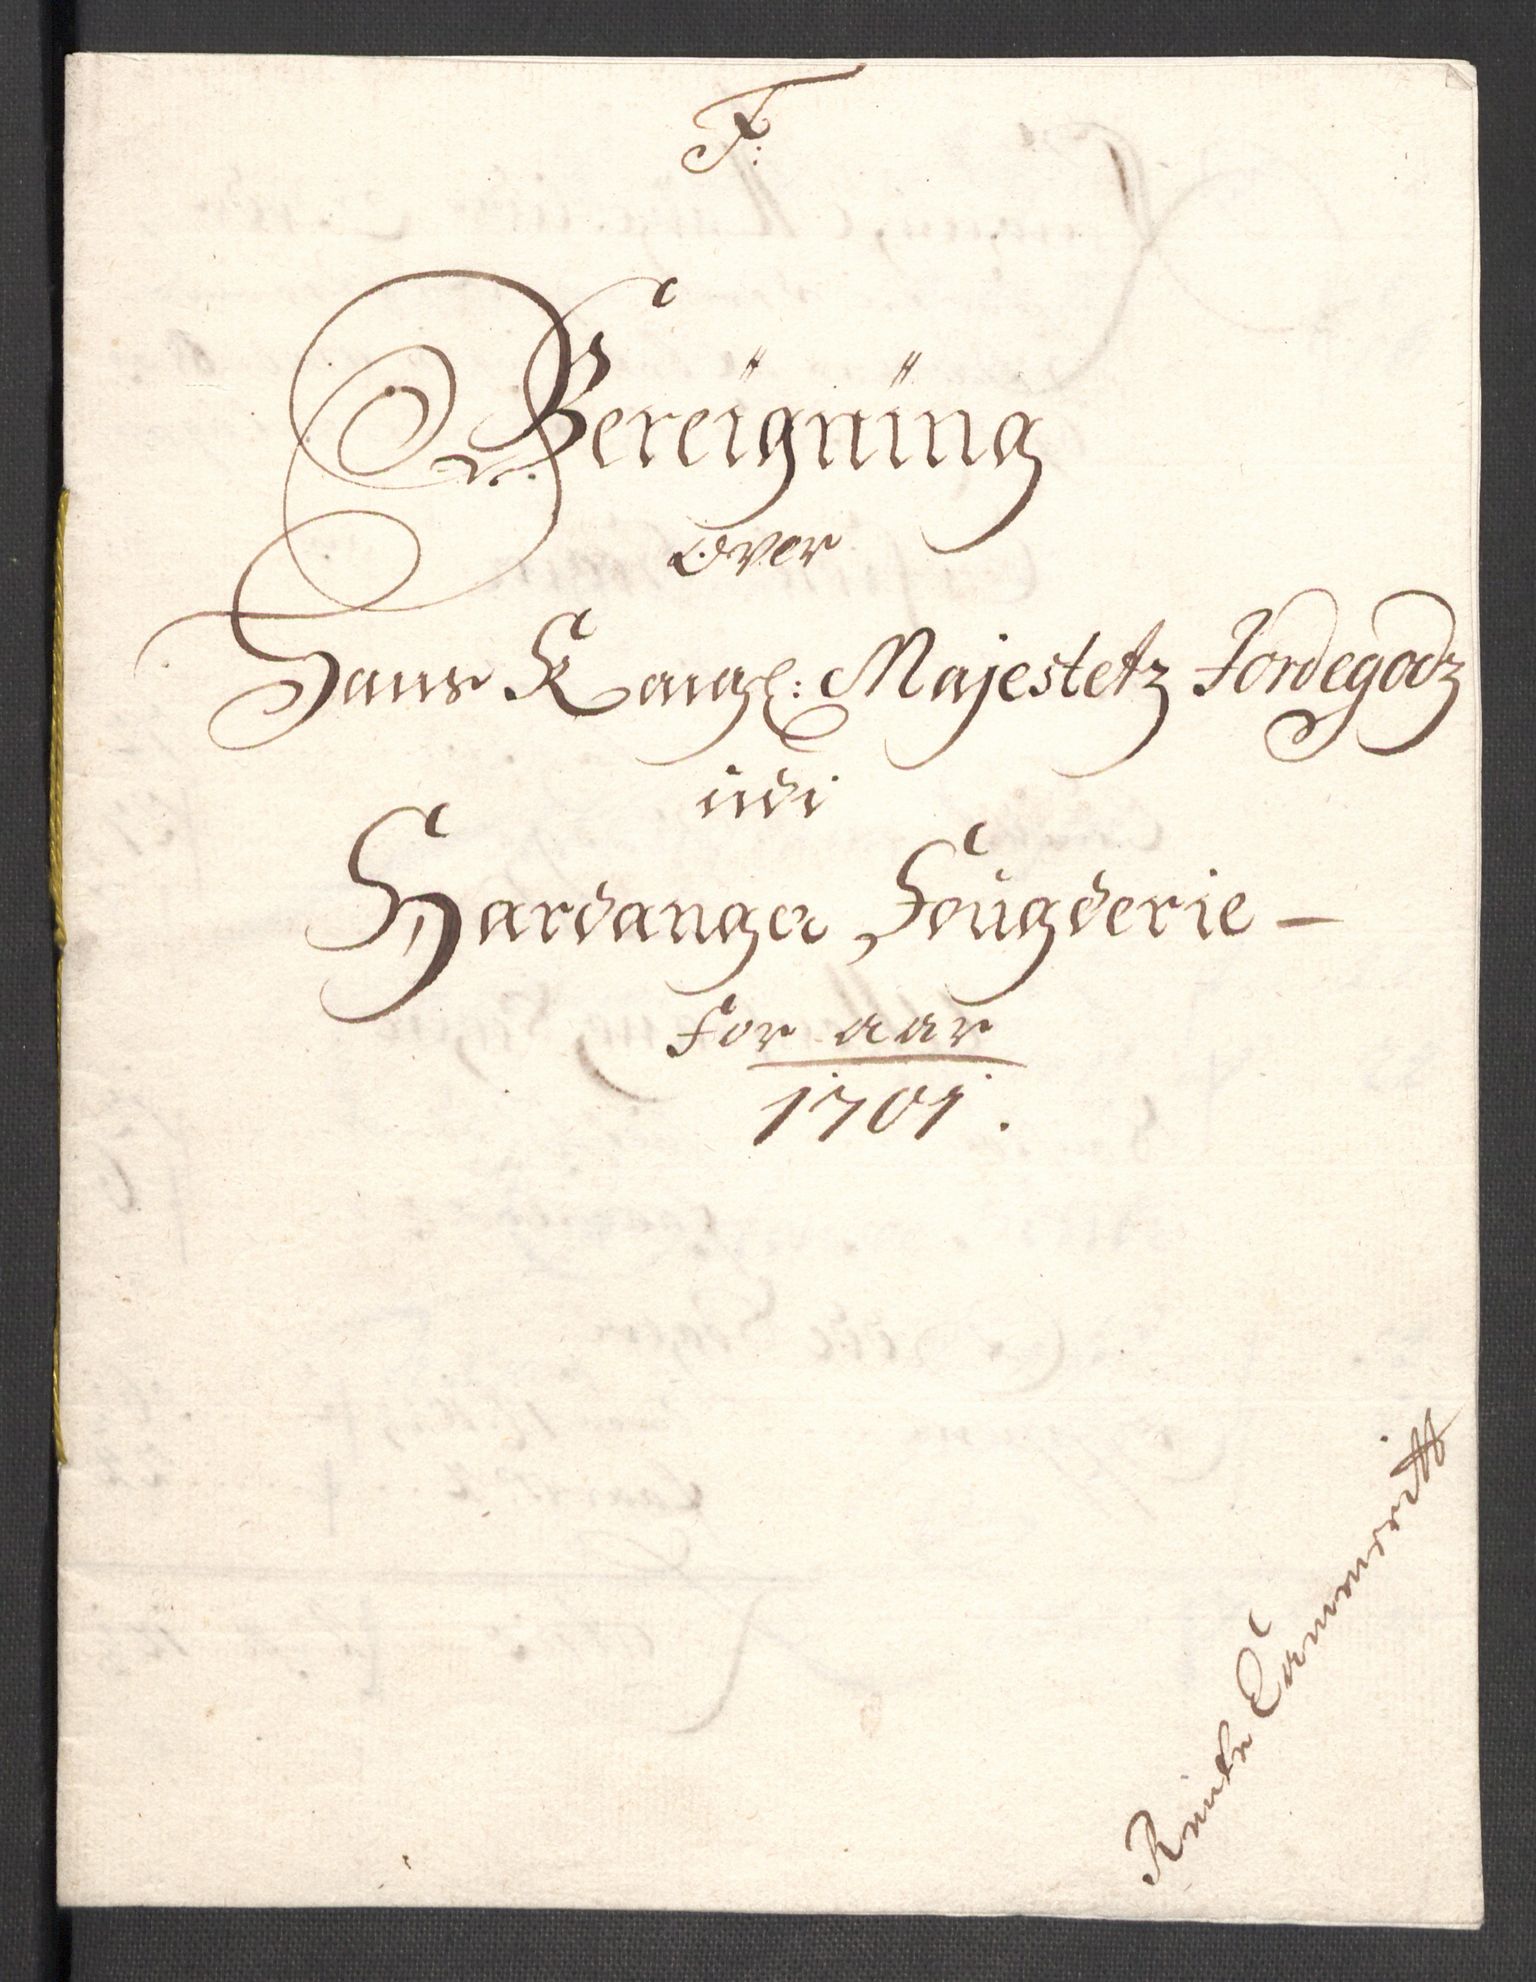 F:
Bereigning
over
Hans Kongl: Majestetz Jordegodz
udi
Hardanger Fougderie –
for aar
1701.
Rente Cammeritt